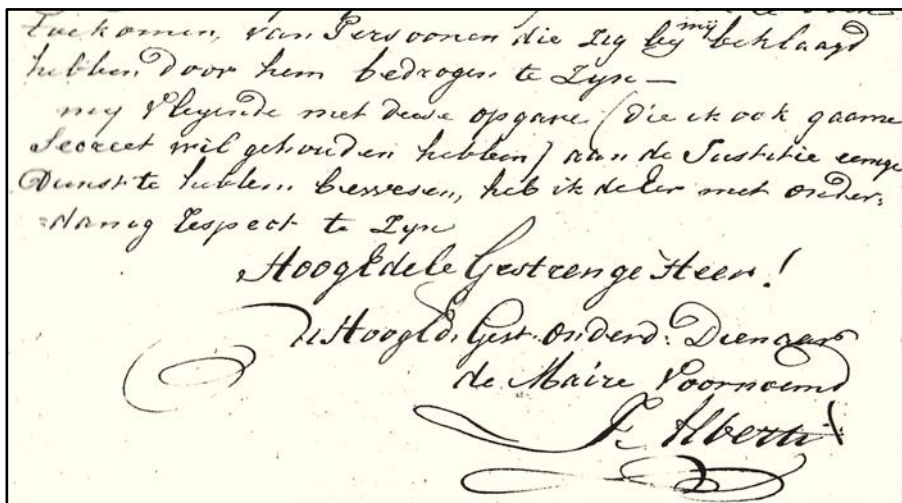 toekomen, van Persoonen die zig by mij beklaagd
hebben door hem bedrogen te zyn —
my Vleyende met deese opgave (die ik ook gaarne
Secreet wil gehouden hebben) aan de Justitie eenige
Dienst te hebben bewesen, heb ik de Eer met onder:
:danig respect te zyn
HoogEdele Gestrenge Heer!
U HoogEd. Gest. onderd: Dienaar
de Maire Voornoemd
F. Alberti